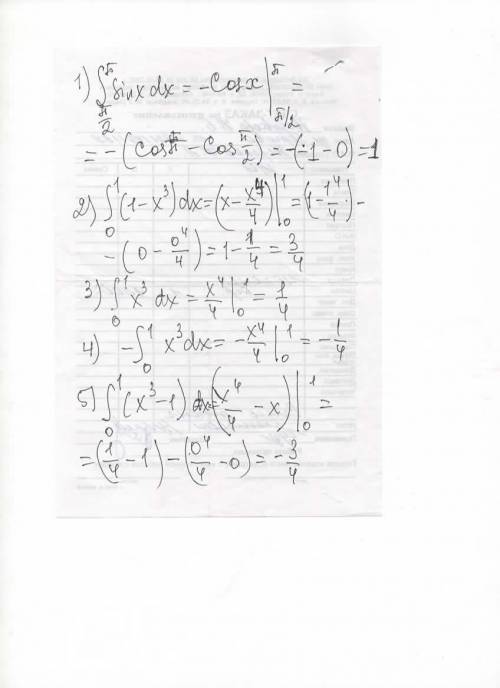 1) ∫_{π/2}^{π} sin x dx = -cos x |_{π/2}^{π} =
= -(cos π - cos π/2) = -(-1 - 0) = 1
2) ∫_0^1 (1-x³) dx = (x - x⁴/4) |_0^1 = (1 - 1⁴/4) -
- (0 - 0⁴/4) = 1 - 1/4 = 3/4
3) ∫_0^1 x³ dx = x⁴/4 |_0^1 = 1/4
4) -∫_0^1 x³ dx = -x⁴/4 |_0^1 = -1/4
5) ∫_0^1 (x³ - 1) dx = (x⁴/4 - x) |_0^1 =
= (1/4 - 1) - (0⁴/4 - 0) = -3/4